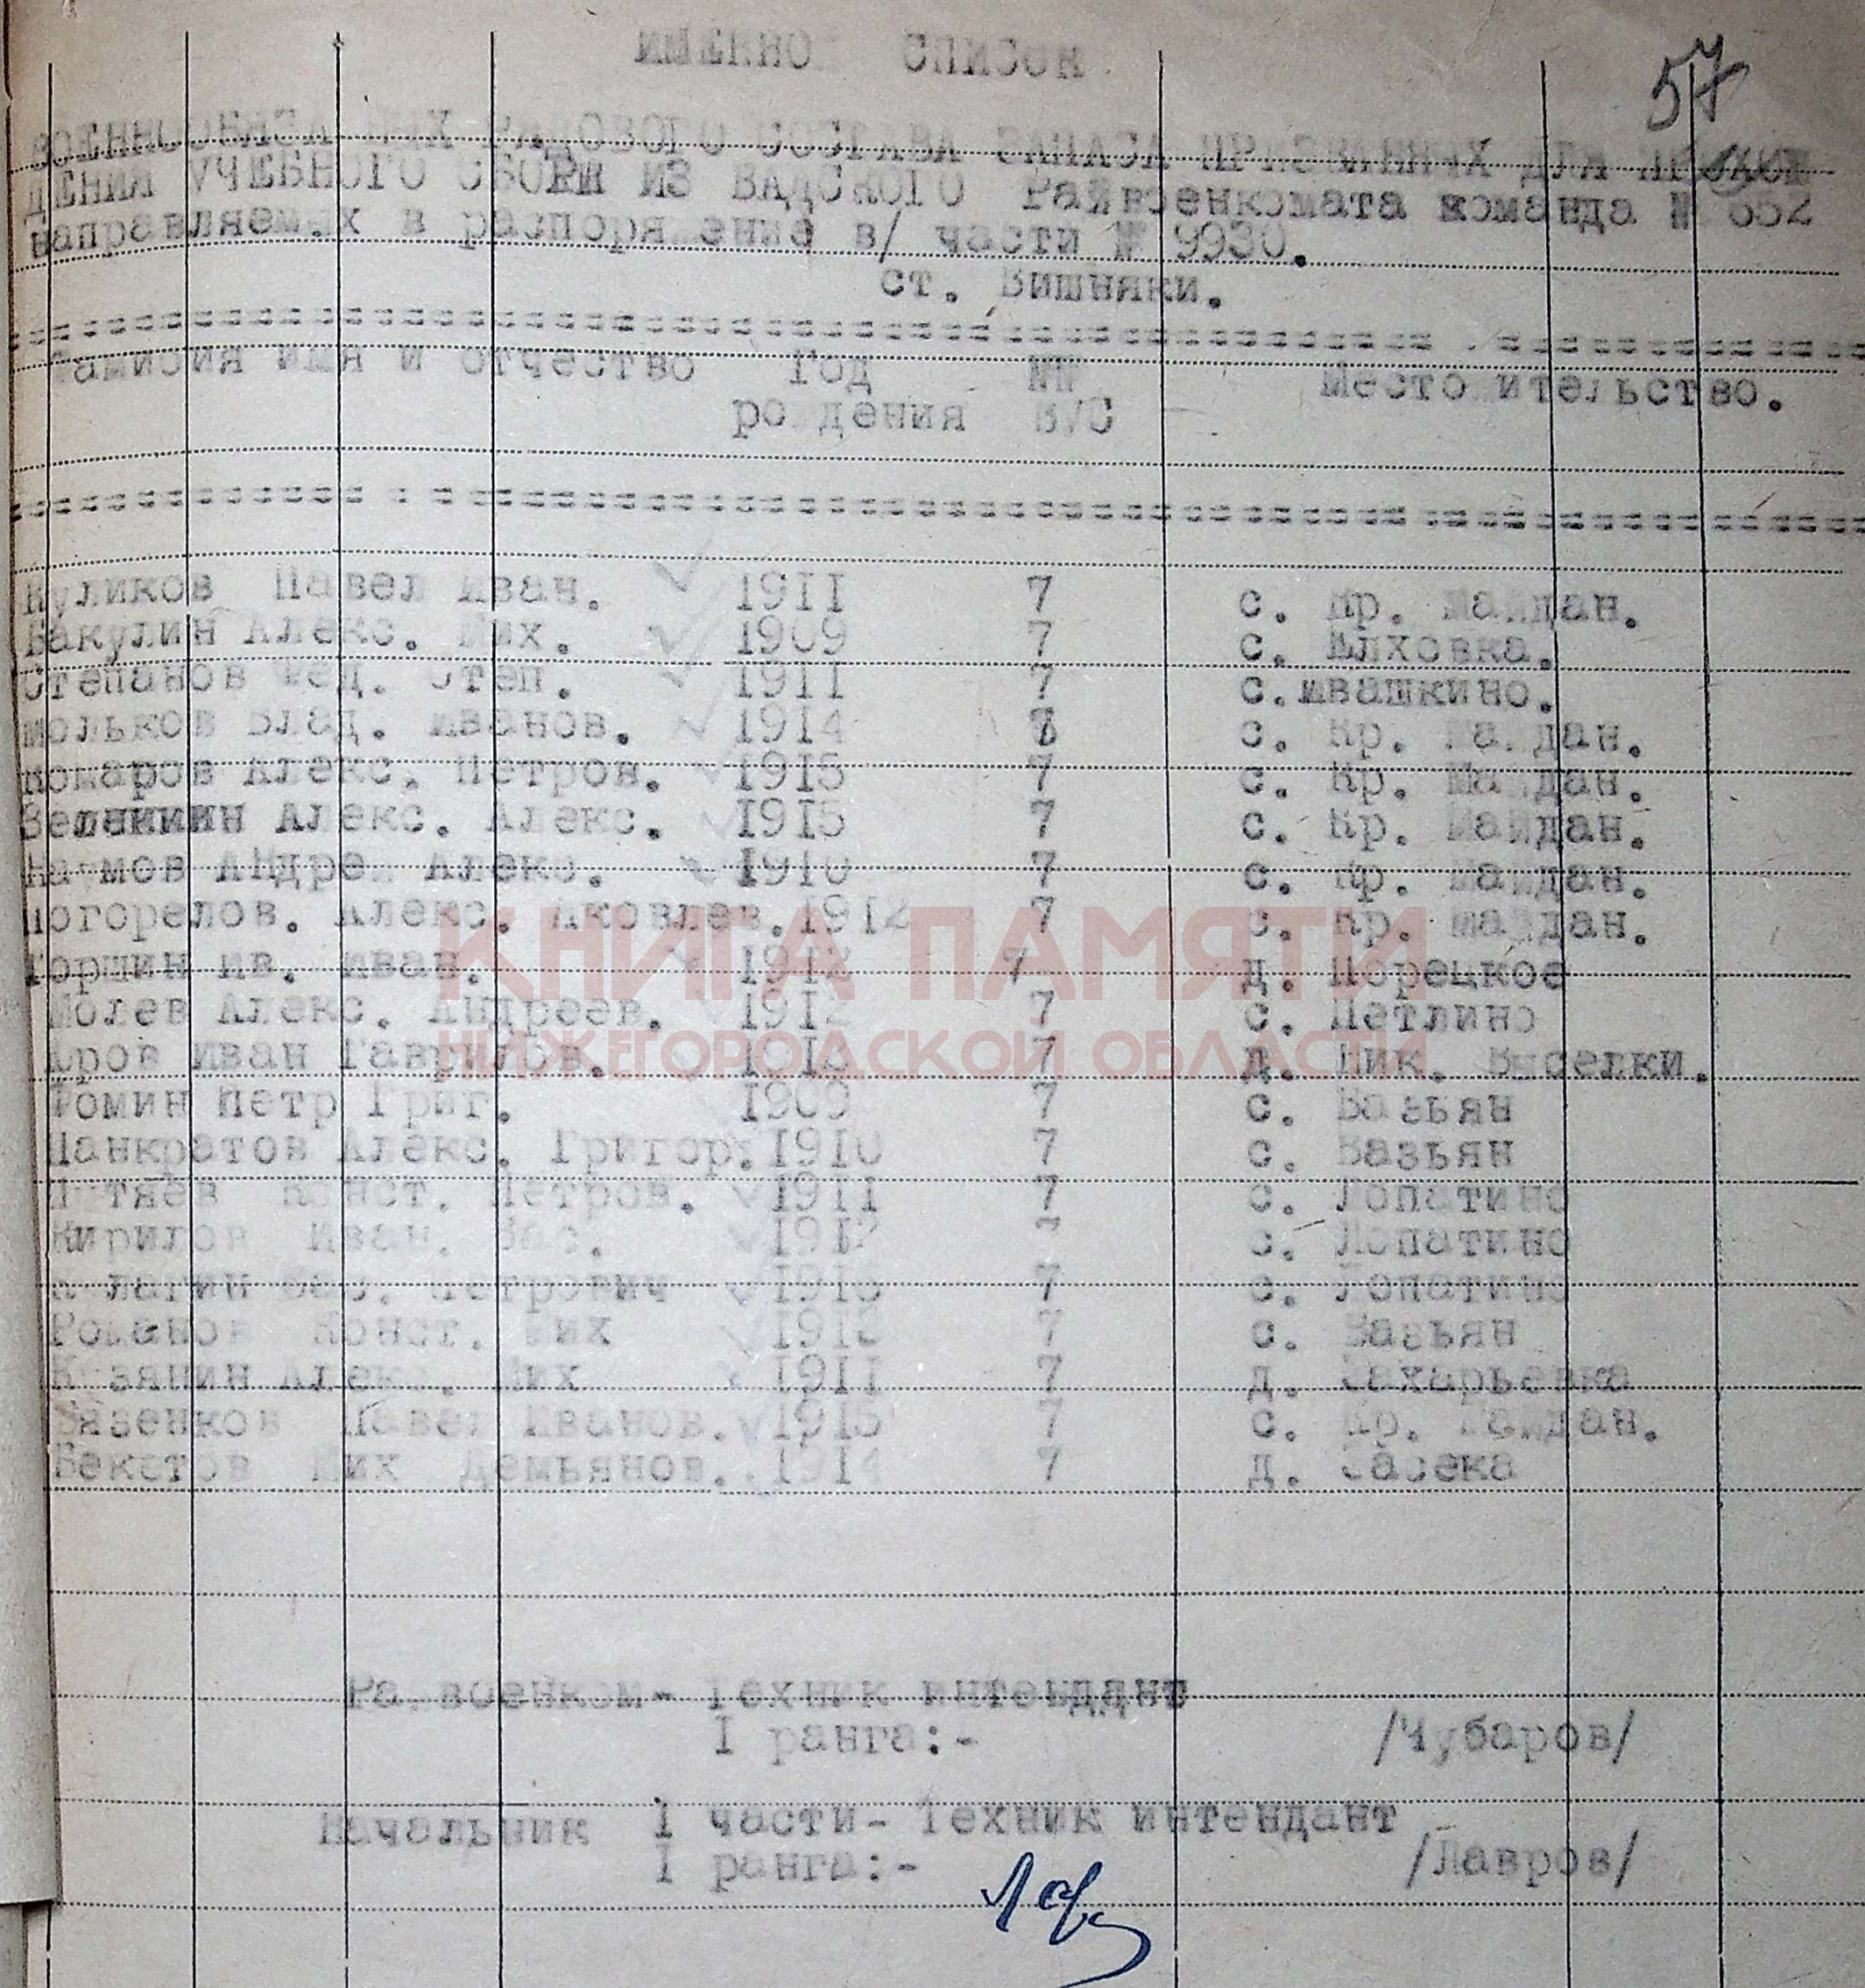 57
ИМЕННО СПИСОК
ВОЕННООБЯЗАННЫХ РЯДОВОГО СОСТАВА ЗАПАСА ПРИЗВАННЫХ ДЛЯ
ДЕНИЯ УЧЕБНОГО СБОРЫ ИЗ ВАДСКОГО Райвоенкомата команда №
направляемых в распоряжение в/ части № 9930.
ст. Вишняки.
Фамилия имя и отчество Год №№ Место ительство.
рождения В/С
Куликов Павел Иван. 1911 7 с. Кр. Майдан.
Вакулин Алекс. Мих. 1909 7 с. Елховка.
Степанов Фед. Степ. 1911 7 с.Ивашкино.
Мольков Влад. Иванов. 1914 с. Кр. Майдан.
Комаров Алекс. Петров. 1915 7 с. Кр. Майдан.
Алекс. Алекс. 1915 7 с. Кр. Майдан.
Наумов Андрей Алекс. 7 с. Кр. Майдан.
Погорелов. Алекс. Яковлев. 7 с. Кр. Майдан.
Горшин Ив. Иван. 7 д. Порецкое
Молев Алекс. Андреев. 1912 7 с. Петлино
Иван Гаврилов. 7 д. Ник. Выселки.
Фомин Петр Григ. 1909 7 с. Вазьян
Панкратов Алекс. Григор. 1910 7 с. Вазьян
Конст. Петров. 1911 7 с. Лопатино
Кирилов Иван. Вас. 1912 7 с. Лопатино
Петрович 7 с. Лопатино
Романов Конст. Мих 7 с. Вазьян
Алекс. Мих 1911 7 д. Захарьевка
Павел Иванов. 1915 7 с. Кр. Майдан.
Мих Демьянов. 1914 7 д. Засека
КНИГА ПАМЯТИ
НИЖЕГОРОДСКОЙ ОБЛАСТИ
Райвоенком- Техник интендант
I ранга:- /Чубаров/
Начальник 1 части- Техник интендант
I ранга:- /Лавров/